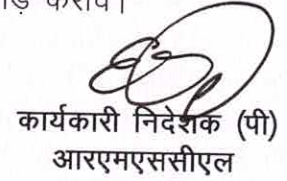 कराव।
कार्यकारी निदेशक (पी)
आरएमएससीएल